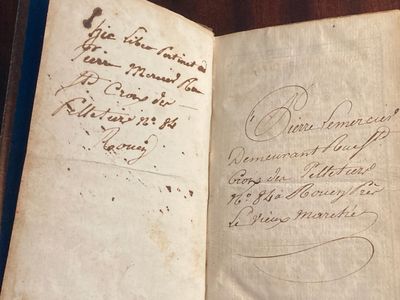 Hic Liber Pertinet ad
Pierre Mercier Rue
St Croix des
Pelletiers No 84
Rouen
Pierre Lemercier
Demeurant Rue St
Croix des Pelletiers
No 84 a Rouen Près
Le vieux marché